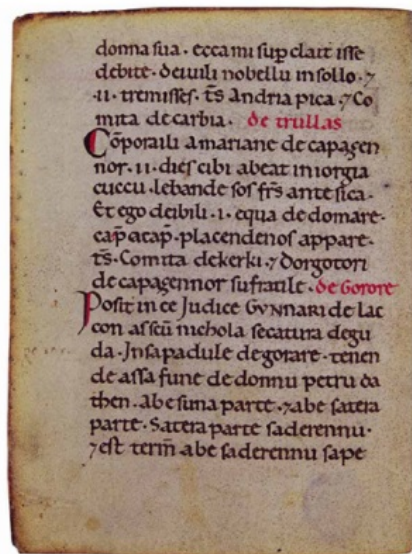 donna sua · ecca mi sup̱ clait isse
debite · deivili nobellu in sollo · ⁊
·II· tremisses · t̄s Andria pica · ⁊ Co
mita de carbia · de trullas
Cōporaili a mariane de capathen
nor · II · dies ci bi abeat in iorgia
cuccu · lebande sos frs̄ ante sica ·
Et ego deibili · I · equa de domare ·
cap̄ a cap̄ · placendenos appare ·
t̄s · Comita de kerki · ⁊ Dorgotori
de capathennor su fratile · de Gorore
Posit ince Judice GVNNARI de lac
con assc̄u nichola secatura de gu
da · Jnsa padule de gorare · tenen
de assa fune de donnu petru da
then · abe suna parte · ⁊ abe satera
parte · Satera parte sa derennu ·
⁊ est term̄ abe sa derennu sape